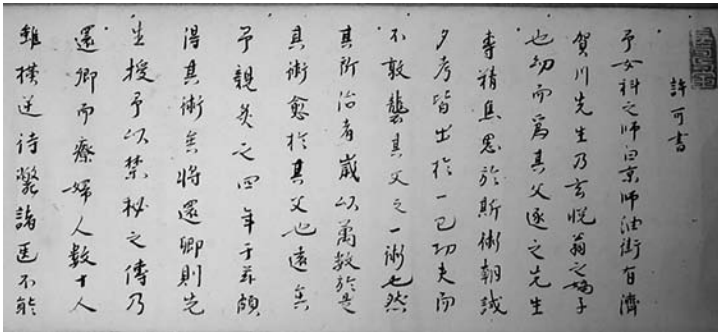 許可書
予女科之師曰京師油街有濟
賀川先生乃玄悅翁之嫡子
也幼而為其父逐之先生
專精焦思於斯術朝試
夕考皆出於一己功夫而
不敢襲其父之一術也然
其所治者歲以萬數於是
其術愈於其父也遠矣
予親炙之四年于茲頗
得其術矣將還鄉則先
生授予以禁秘之傳乃
還鄉而療婦人數十人
雖橫逆待斃諸醫不能